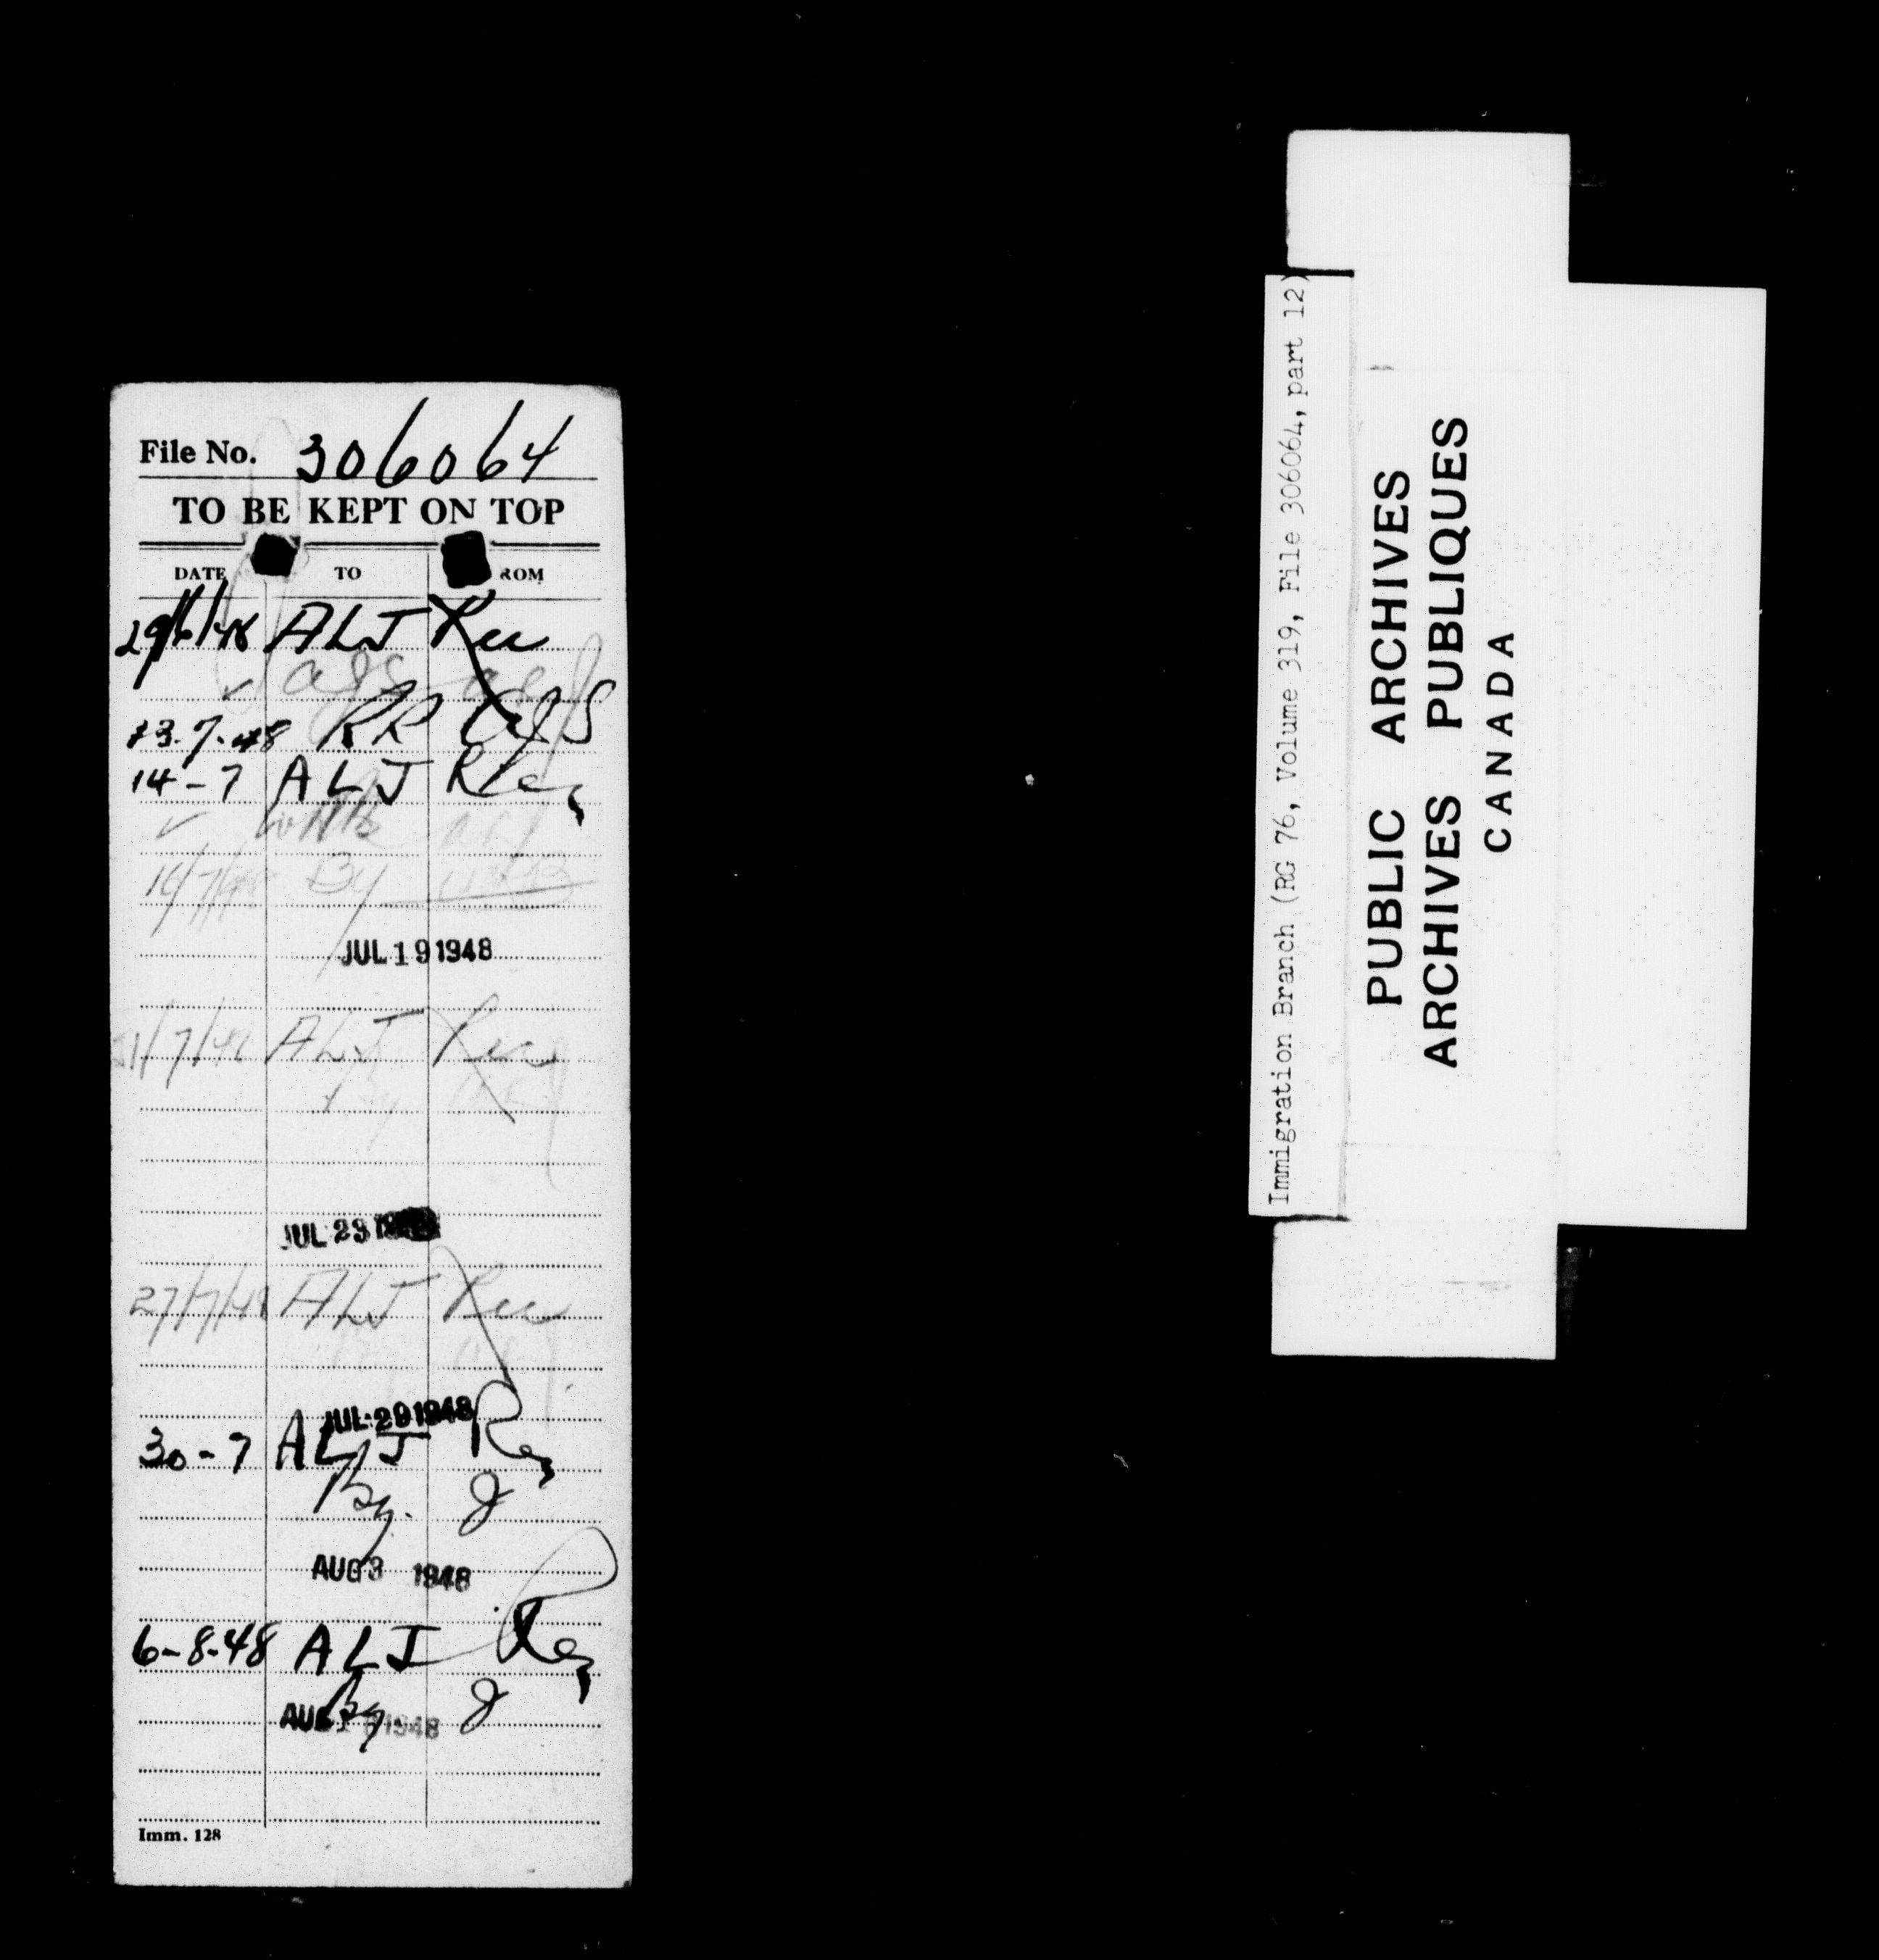 File No. 306064
TO BE KEPT ON TOP
DATE TO ROM
29/6/48 ALJ Rec
13.7.48 RR
14-7 ALJ
16/7/48 By
JUL 19 1948
21/7/48 ALJ Rec
By
JUL 23
27/7/48 ALJ Rec
JUL 29 1948
30-7 ALJ
By. J
AUG 3 1948
6-8-48 ALJ
By. J
AUG 1948
Imm. 128
Immigration Branch (RG 76, Volume 319, File 306064, part 12)
PUBLIC ARCHIVES
ARCHIVES PUBLIQUES
CANADA